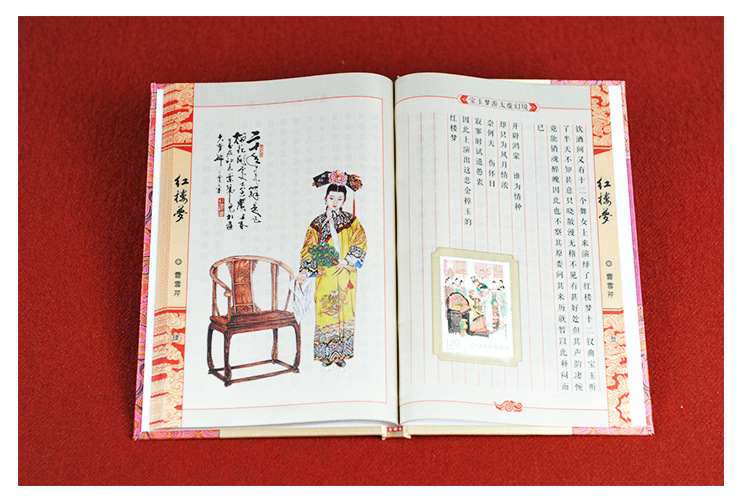 宝玉梦游太虚幻境
饮酒间又有十二个舞女上来演绎了红楼梦十二仪曲宝玉听
了半天不知甚意只晓散漫无格不见有甚好处但其声韵凄惋
竟能销魂醉魄因此也不察其原委问其来历就暂以此释闷而
已
开辟鸿蒙 谁为情种
却只为风月情浓
奈何天 伤怀日
寂寥时试遣愚衷
因此上演出这悲金悼玉的
红楼梦
红楼梦
曹雪芹
二十年来辨是非
红楼梦
曹雪芹
肆